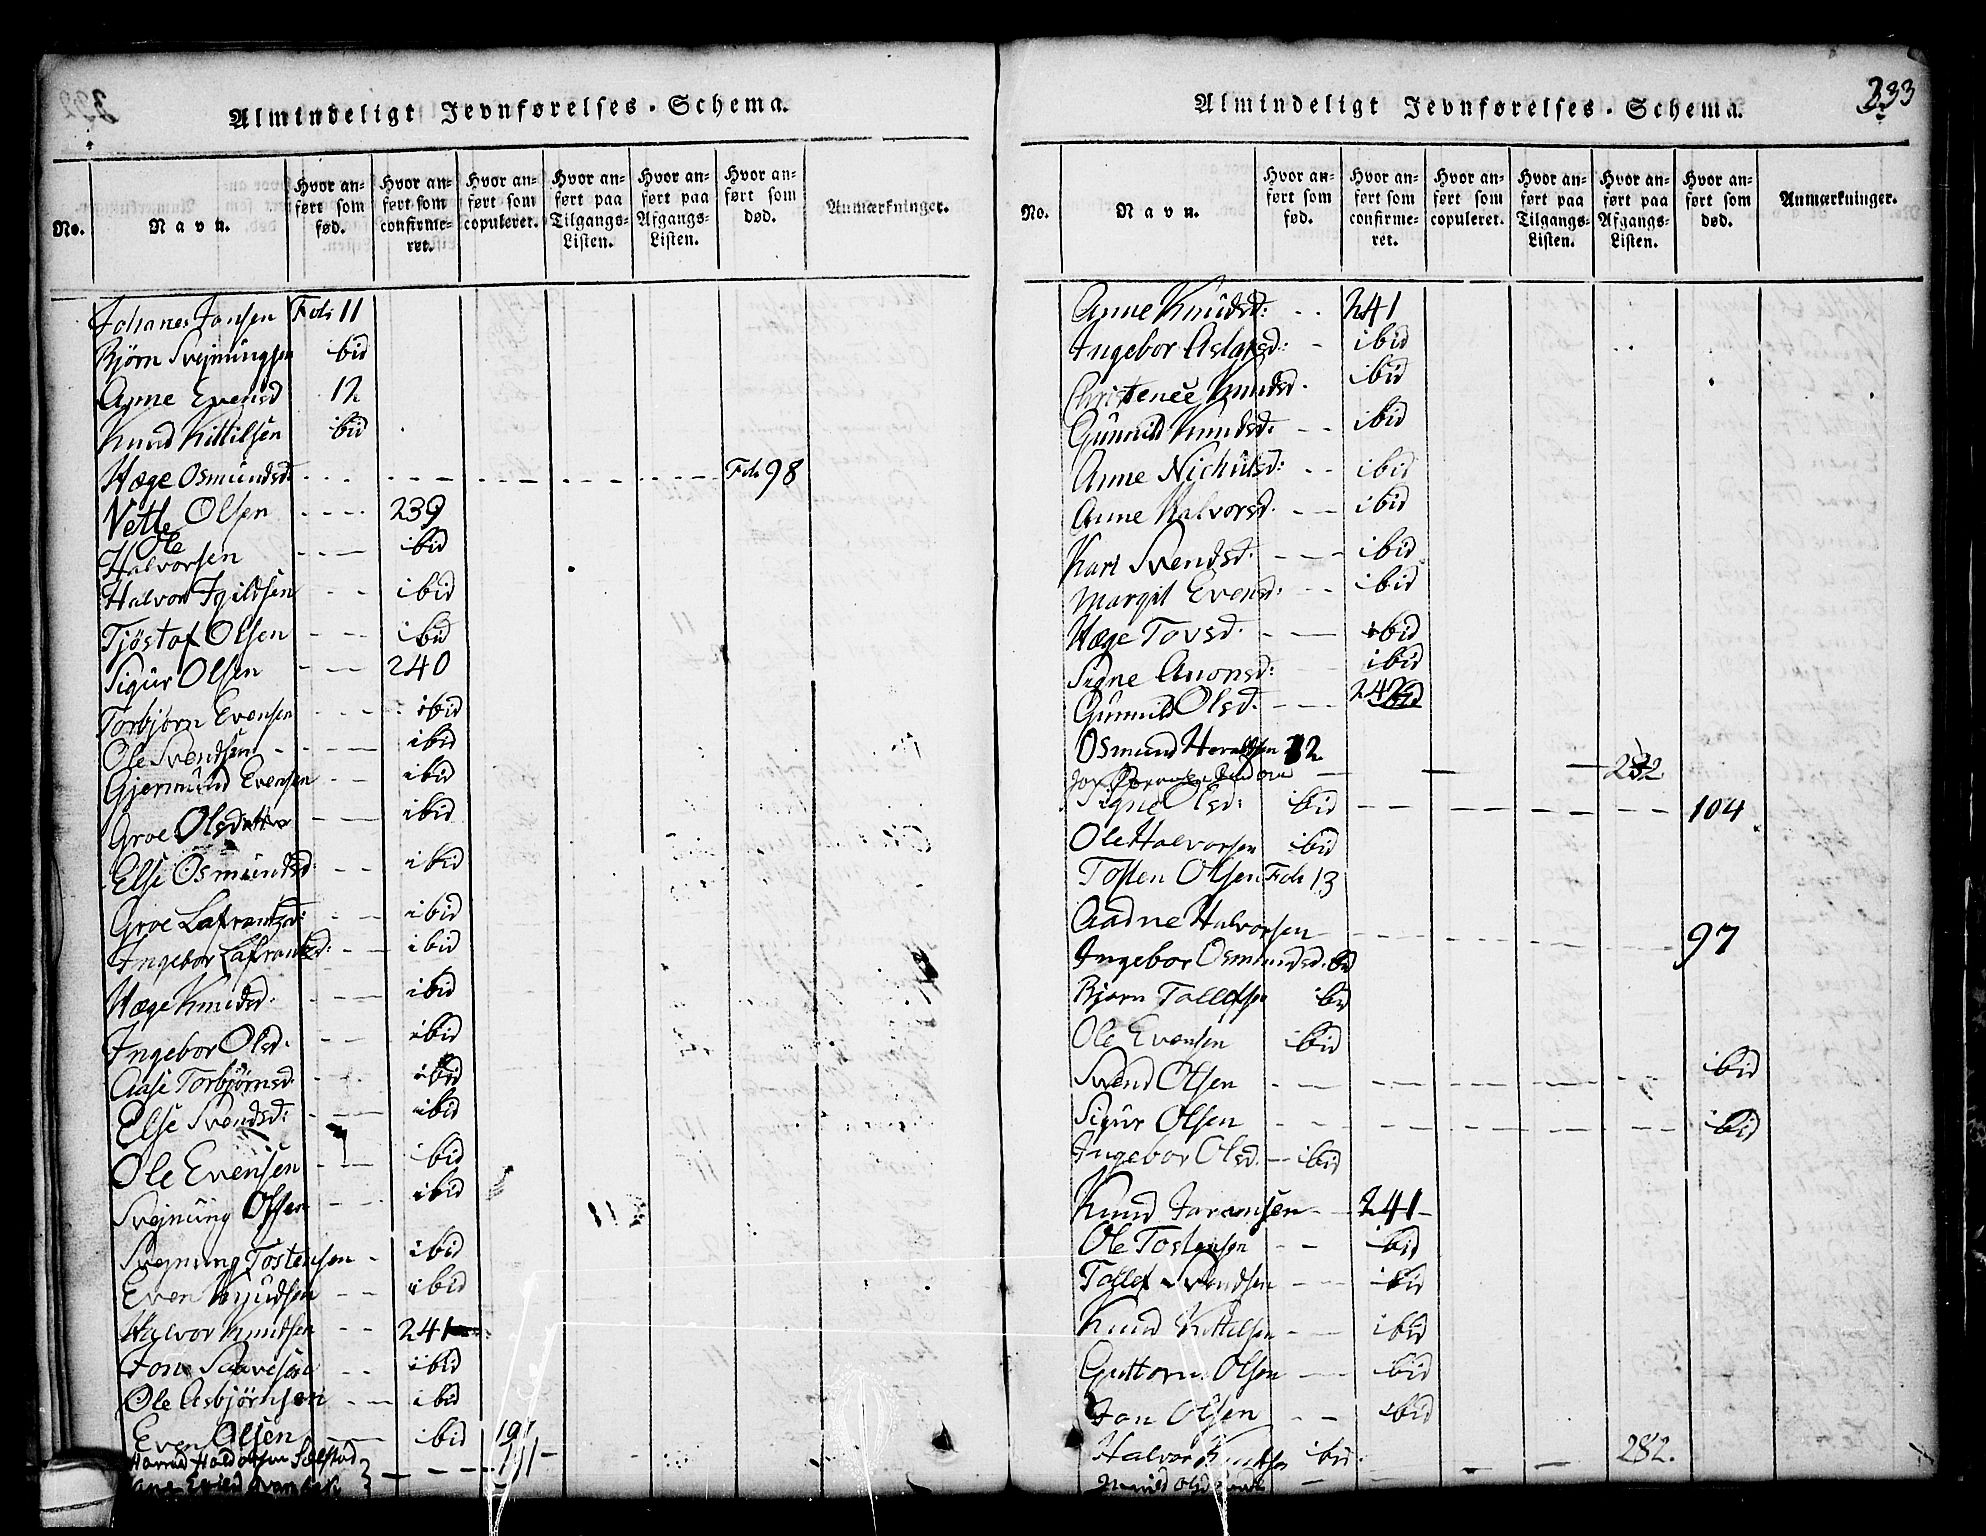 Almindeligt Jevnførelses-Schema.
No.
Navn.
Hvor anført som fød.
Hvor anført som confirmeret.
Hvor anført som copuleret.
Hvor anført paa Tilgangs-Listen.
Hvor anført paa Afgangs-Listen.
Hvor anført som død.
Anmærkninger.
Johanes Jonsen Foli 11
Bjørn Svejnungsen ibid
Anne Evensd 12
Knud Kittilsen ibid
Hæge Osmundsd: Foli 98
Vetle Olsen 239
Ole Halvorsen ibid
Halvor Igildsen ibid
Tjöstof Olsen ibid
Sigur Olsen 240
Torbjorn Evensen ibid
Ole Svendsen ibid
Gjermund Evensen ibid
Groe Olsdatter ibid
Else Osmundsd: ibid
Groe Lafrantzd: ibid
Ingebor Lafrantzd: ibid
Hæge Knudsd. ibid
Ingebor Olsd. ibid
Aase Torbjørnsd. ibid
Else Svendsd: ibid
Ole Evensen ibid
Svejnung Olsen ibid
Svejnung Tostensen ibid
Even Knudsen ibid
Halvor Knudsen 241
Jon Saavesen ibid
Ole Asbjørnsen ibid
Even Olsen ibid
191
Almindeligt Jevnførelses-Schema.
333
No.
Navn.
Hvor anført som fød.
Hvor anført som confirmeret.
Hvor anført som copuleret.
Hvor anført paa Tilgangs-Listen.
Hvor anført paa Afgangs-Listen.
Hvor anført som død.
Anmærkninger.
Anne Knudsd: 241
Ingebor Aslaksd: ibid
Christence Knudsd. ibid
Gunnild Knudsd. ibid
Anne Nichulsd: ibid
Anne Halvorsd. ibid
Kari Svendsd. ibid
Margit Evensd: ibid
Hæge Tovsd. ibid
Signe Anonsd: ibid
Gunnild Olsd. 242
Osmund Horaldsen 12
282
Signe Olsd: ibid 104
Ole Halvorsen ibid
Tosten Olsen Foli 13
Aadne Halvorsen 97
Ingebor Osmundsd. ibid
Bjorn Tollefsen ibid
Ole Evensen ibid
Svend Olsen ibid
Sigur Olsen ibid
Ingebor Olsd. ibid
Knud Joransen 241
Ole Tostensen ibid
Tollef Svendsen ibid
Knud Kittelsen ibid
Guttorm Olsen ibid
Jon Olsen ibid
Halvor Knudsen ibid. 282.